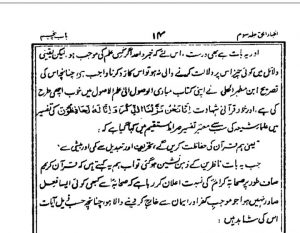 اظہار الحق جلد سوم ۱۴ باب پنجم
اور یہ بات بھی درست، اس لئے کہ خبر واحد اگر کسی علم کی موجب ہو، لیکن یقینی
دلائل میں کوئی چیز اس پر دلالت کرنے والی نہ ہو تو اس کا رد کرنا واجب ہے، چنانچہ اس کی
تصریح ابن مطہر الحلی نے اپنی کتاب مبادی الوصول الی علم الاصول میں خوب اچھی طرح
کی ہے، اور خود قرآنی شہادت إِنَّا نَحْنُ نَزَّلْنَا الذِّكْرَ وَإِنَّا لَهُ لَحَافِظُونَ کی تفسیر
میں علماء شیعہ کی سب سے معتبر تفسیر صراط مستقیم میں کہا گیا ہے کہ:
یعنی ہم قرآن کی حفاظت کریں گے تحریف اور تبدیلی سے اور کمی و بیشی سے
جب یہ بات ناظرین کے ذہن نشین ہو گئی تو اب ہم یہ کہتے ہیں کہ قرآن کریم
صاف طور پر صحابۂ کرام کی نسبت اعلان کر رہا ہے کہ صحابہ سے کبھی کوئی ایسا فعل
صادر نہیں ہوا جو موجب کفر اور ایمان سے خارج کرنے والا ہو، چنانچہ حسب ذیل آیات
اس کی شاہد ہیں: